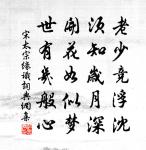 老少竟浮沈
須知歲月深
開花如似夢
世有幾般心
宋太宗緣識詞典網集